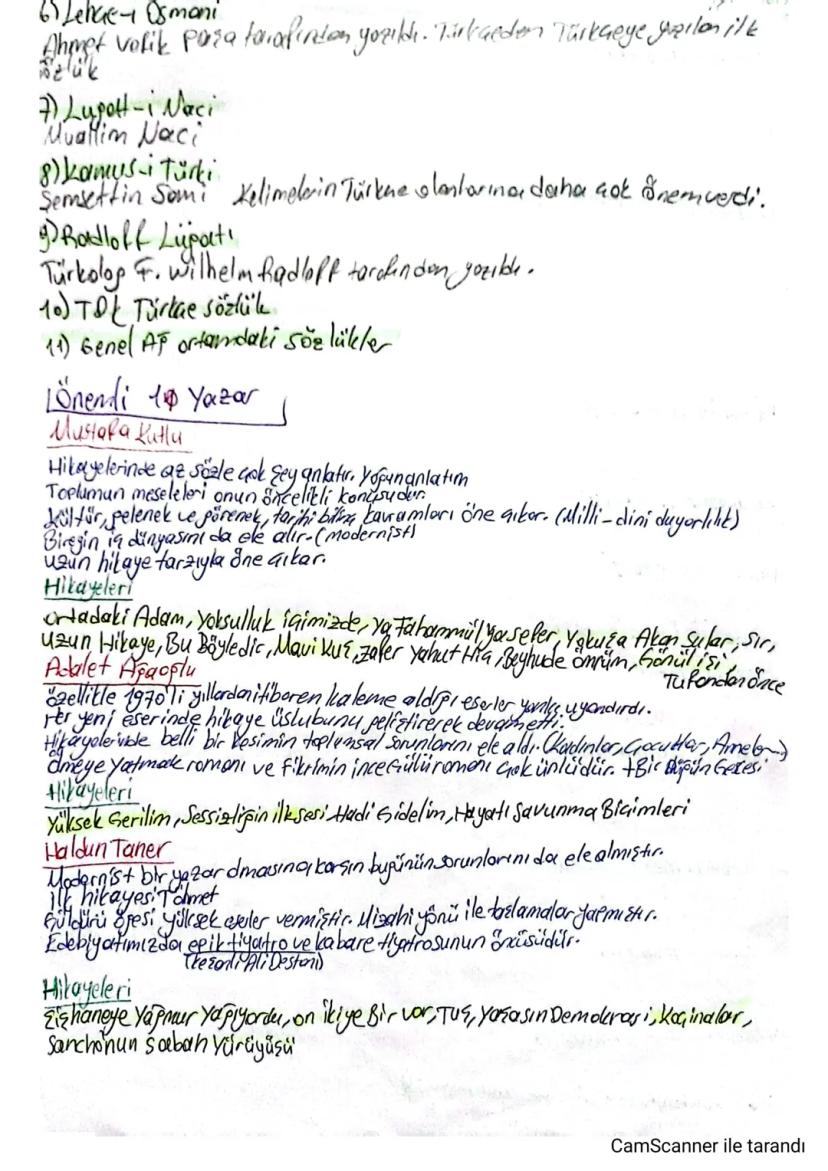 6) Lehce-i Osmani
Ahmet Vefik Paşa tarafından yazıldı. Türkçeden Türkçeye yazılan ilk
sözlük
7) Lugatt-i Naci
Muallim Naci
8) Kamus-i Türki
Şemsettin Sami Kelimelerin Türkçe olanlarına daha çok önem verdi.
9) Radloff Lügatı
Türkolog F. Wilhelm Radloff tarafından yazıldı.
10) TDK Türkçe sözlük
11) Genel Ağ ortamdaki sözlükler
Önemli 10 Yazar
Mustafa Kutlu
Hikayelerinde az sözle çok şey anlatır. Yoğun anlatım
Toplumun meseleleri onun öncelikli konusudur.
Kültür, gelenek ve görenek, tarihi bilinç kavramları öne çıkar. (Milli-dini duyarlılık)
Bireyin iç dünyasını da ele alır. (modernist)
Uzun hikaye tarzıyla öne çıkar.
Hikayeleri
Ortadaki Adam, Yoksulluk içimizde, Ya Tahammül ya sefer, Yokuşa Akan Sular, Sır,
Uzun Hikaye, Bu Böyledir, Mavi Kuş, Zafer yahut Hiç, Beyhude ömrüm, Gönül işi,
Tufandan önce
Adalet Ağaoğlu
özellikle 1970'li yıllardan itibaren kaleme aldığı eserler yankı uyandırdı.
Her yeni eserinde hikaye üslubunu geliştirerek devam etti.
Hikayelerinde belli bir kesimin toplumsal sorunlarını ele aldı. (Kadınlar, Çocuklar, Ameler)
Ölmeye Yatmak romanı ve Fikrimin ince Gülü romanı çok ünlüdür. +Bir Düğün Gecesi
Hikayeleri
Yüksek Gerilim, Sessizliğin ilk sesi, Hadi Gidelim, Hayatı Savunma Biçimleri
Haldun Taner
Modernist bir yazar olmasına karşın bugünün sorunlarını da ele almıştır.
ilk hikayesi Töhmet
Güldürü öğesi yüksek eserler vermiştir. Mizahi yönü ile taşlamalar yapmıştır.
Edebiyatımızda epik tiyatro ve kabare tiyatrosunun öncüsüdür.
(Keşanlı Ali Destanı)
Hikayeleri
Şişhaneye Yağmur Yağıyordu, on ikiye Bir var, Tuş, Yaşasın Demokrasi, Koçinalar,
Sancho'nun Sabah Yürüyüşü
CamScanner ile tarandı